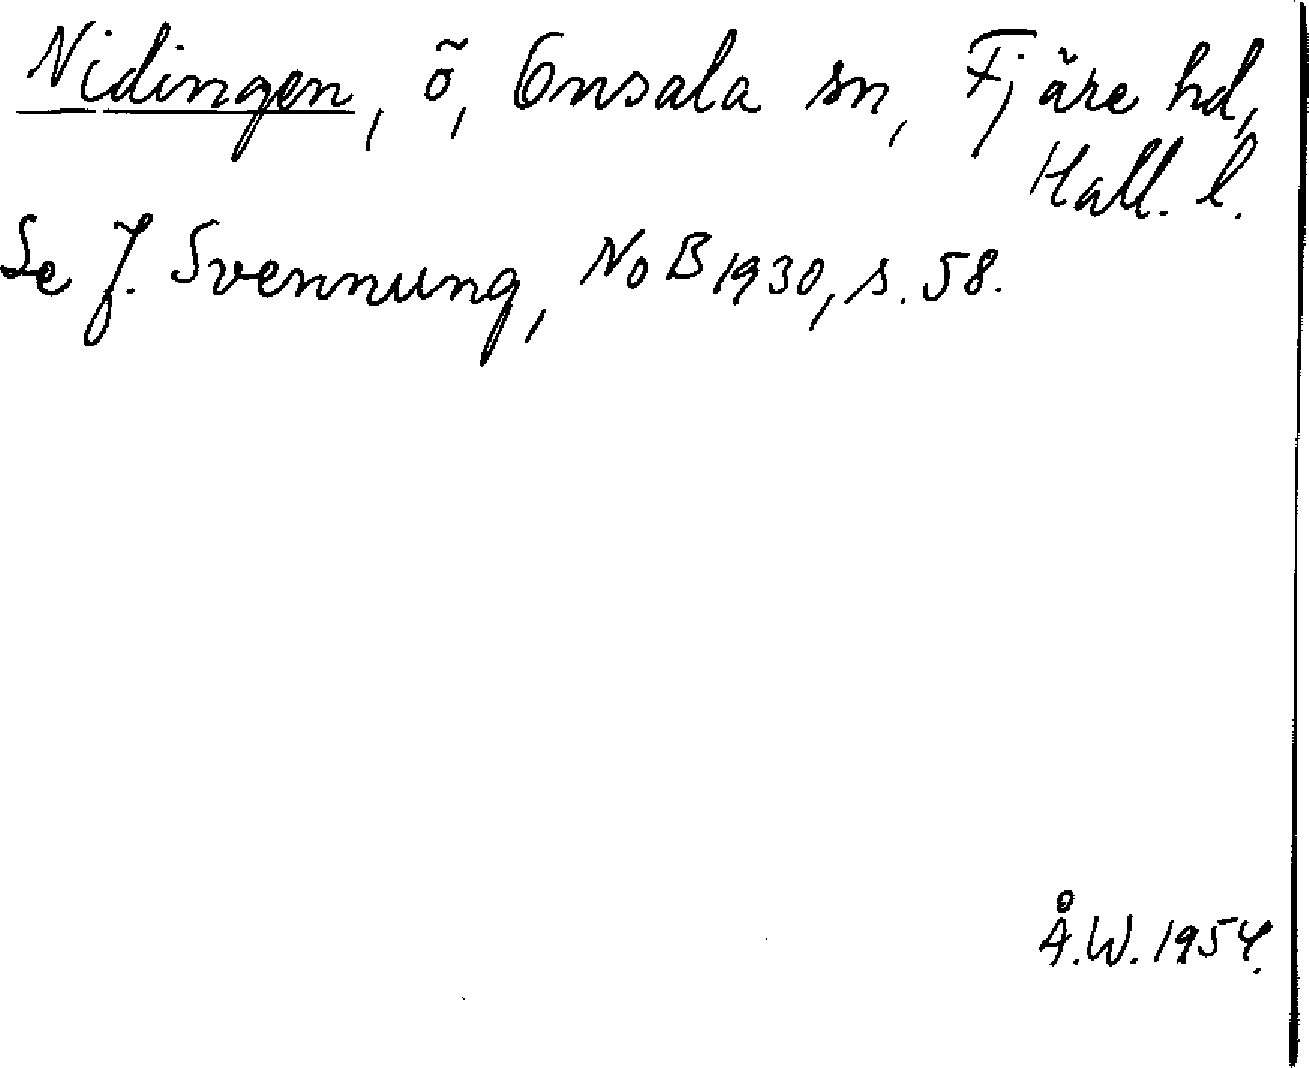 Nidingen, ö, Onsala sn, Fjäre hd,
Hall. l.
Se J. Svennung, NoB 1930, s. 58.
Å.W. 1954.